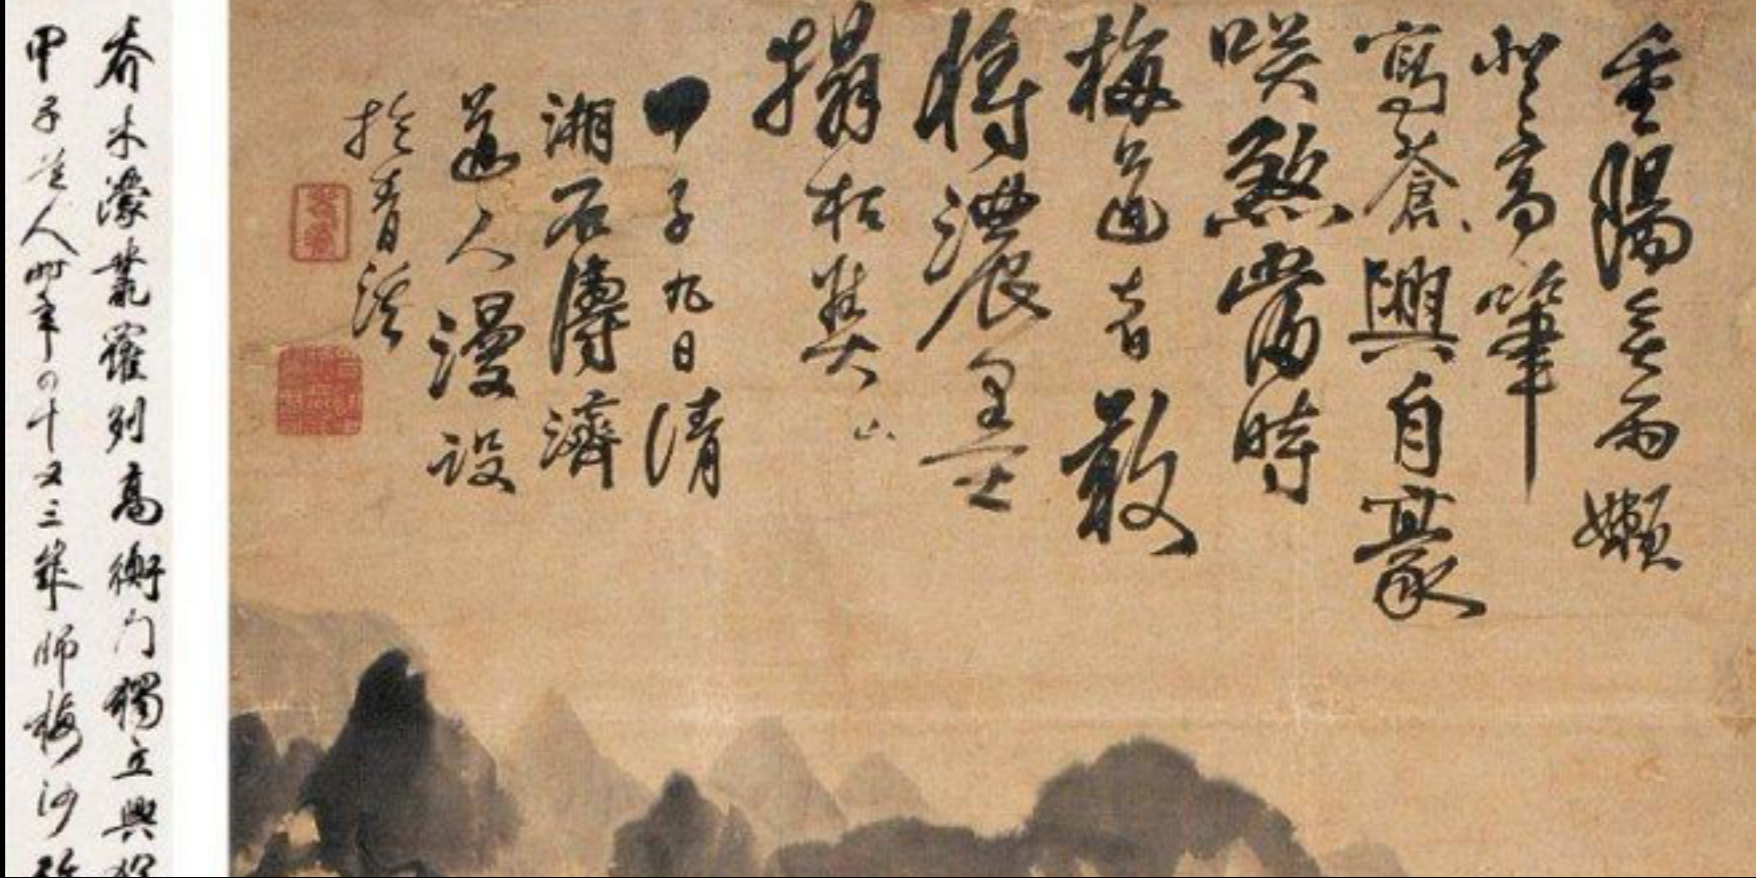 重陽無雨嬾
登高筆
寫蒼興自豪
咲煞當時
梅道者敢
將濃墨
搨枯
甲子九日清
湘石濤濟
道人漫设
於青溪
喬木濛叢羅列高衡门獨立興
甲子道人時年四十又三年師梅沙